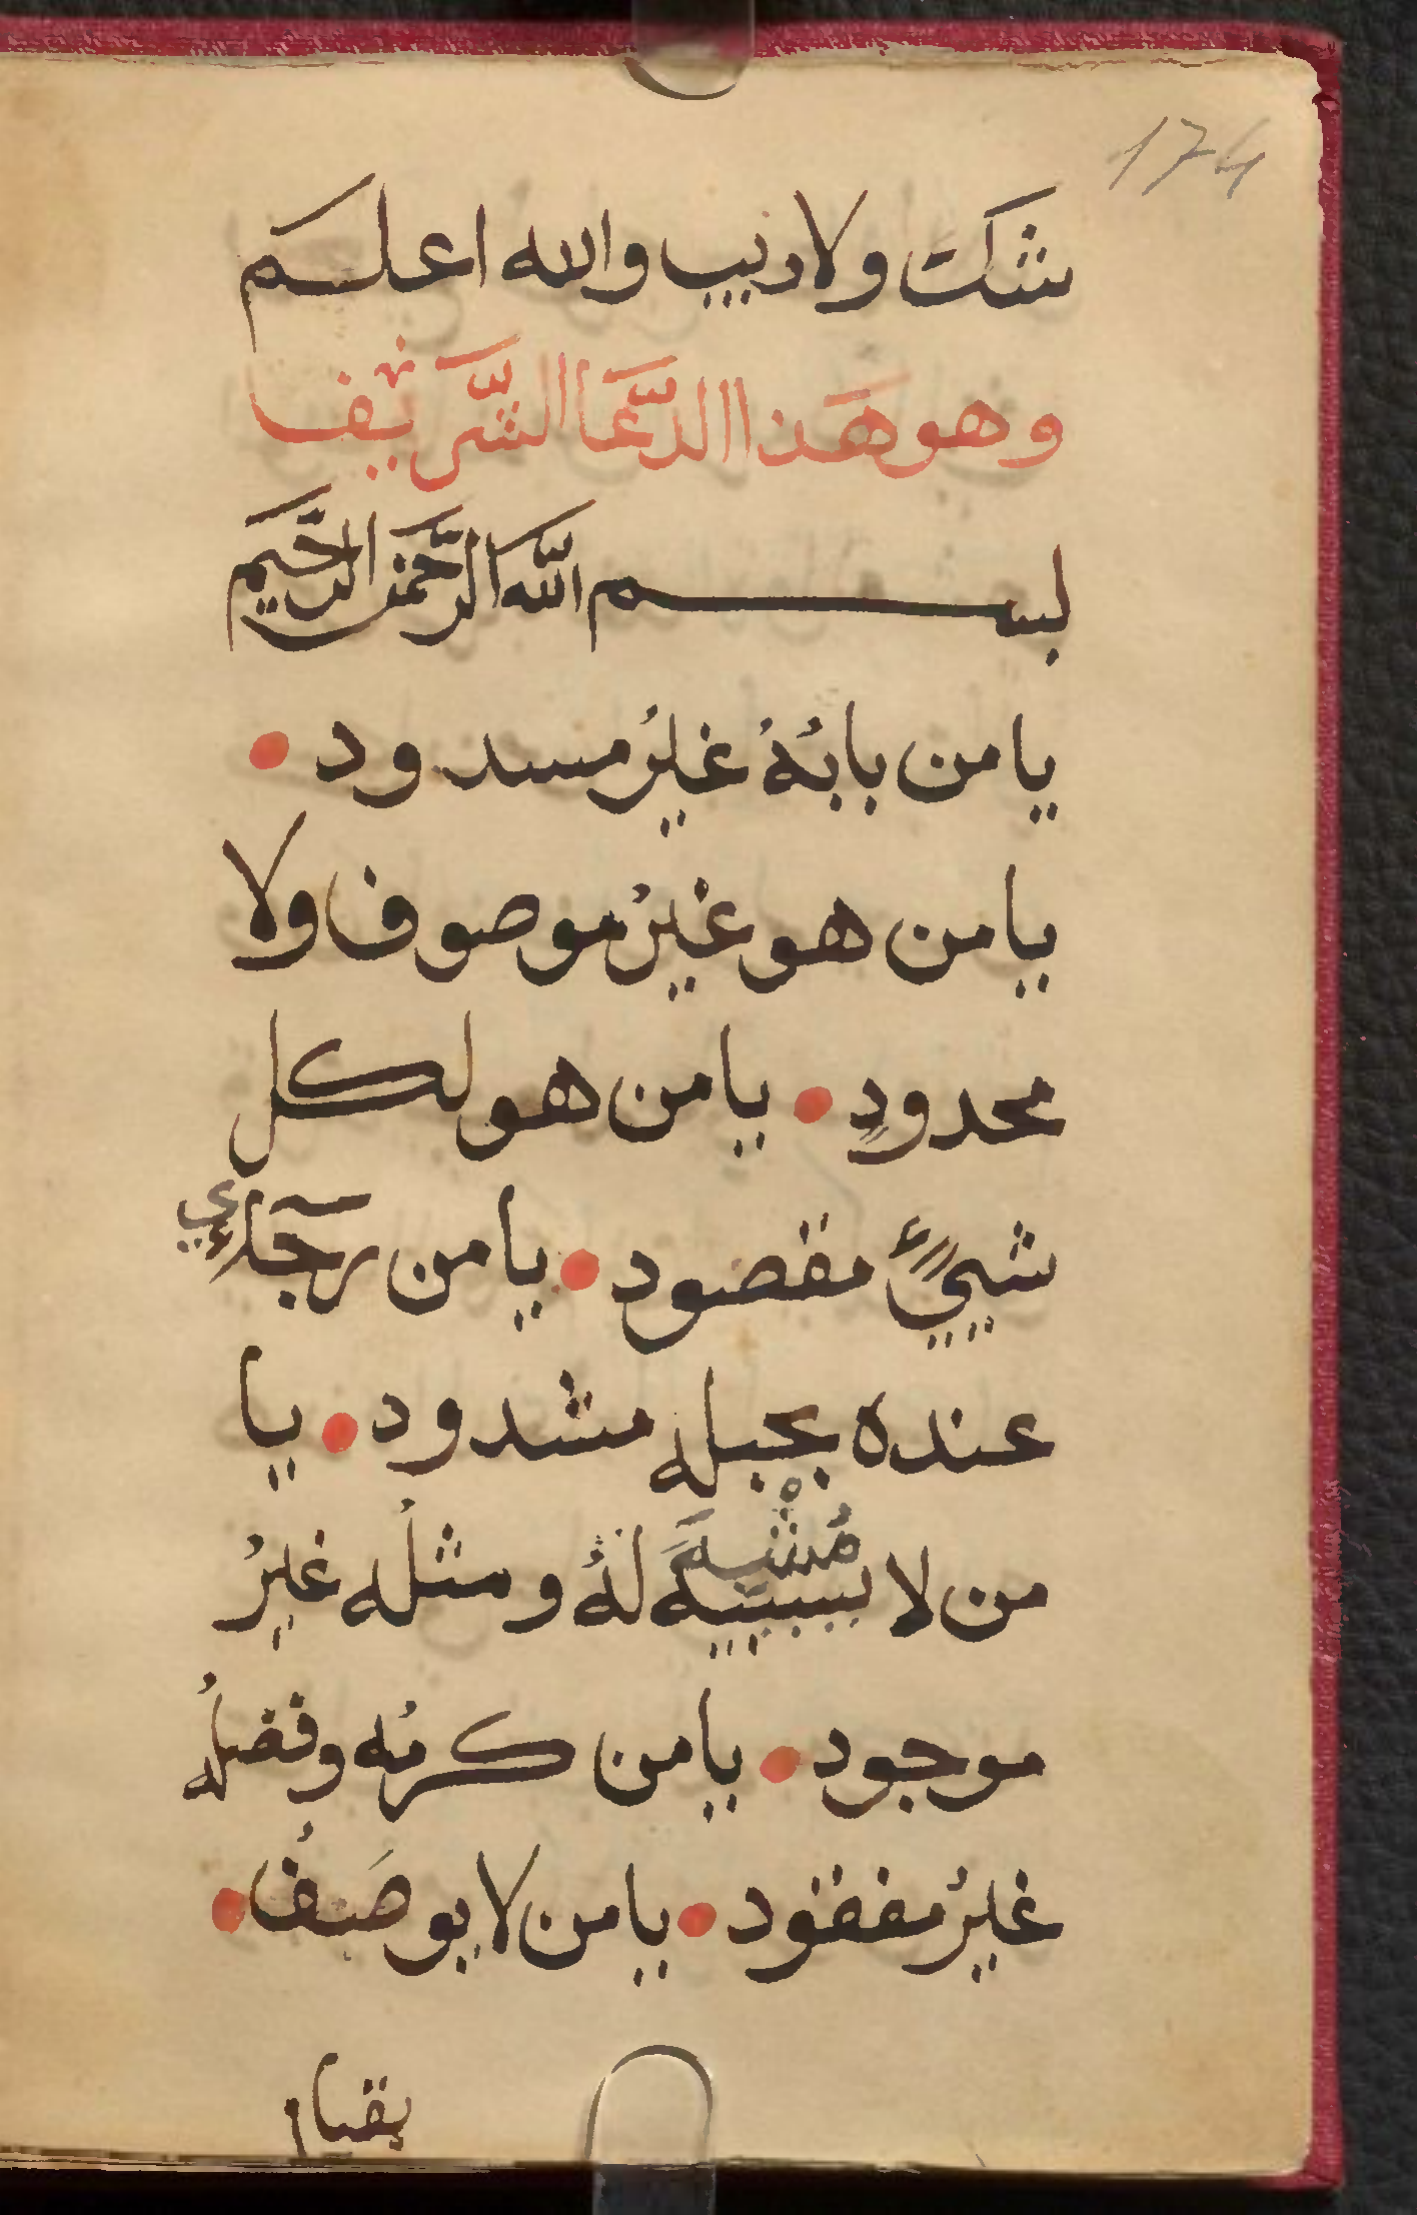 174
شك ولا ريب والله اعلم
وهو هَذا الدَّعَا الشَّريف
بسم اللَّه الرَّحمن الرَّحيم
يا من بابُهُ غيرُ مسدود
يا من هو غيرُ موصوف ولا
محدودٍ يا من هو لكل
شييءٍ مقصود يا من رجآءِي
عنده بحبله مشدود يا
من لا شبيهَ لهُ ومثلُه غيرُ
مُشْبِهَ
موجود يا من كرمُه وفضلُه
غيرُ مفقود يا من لا يوصَفُ
بقيام